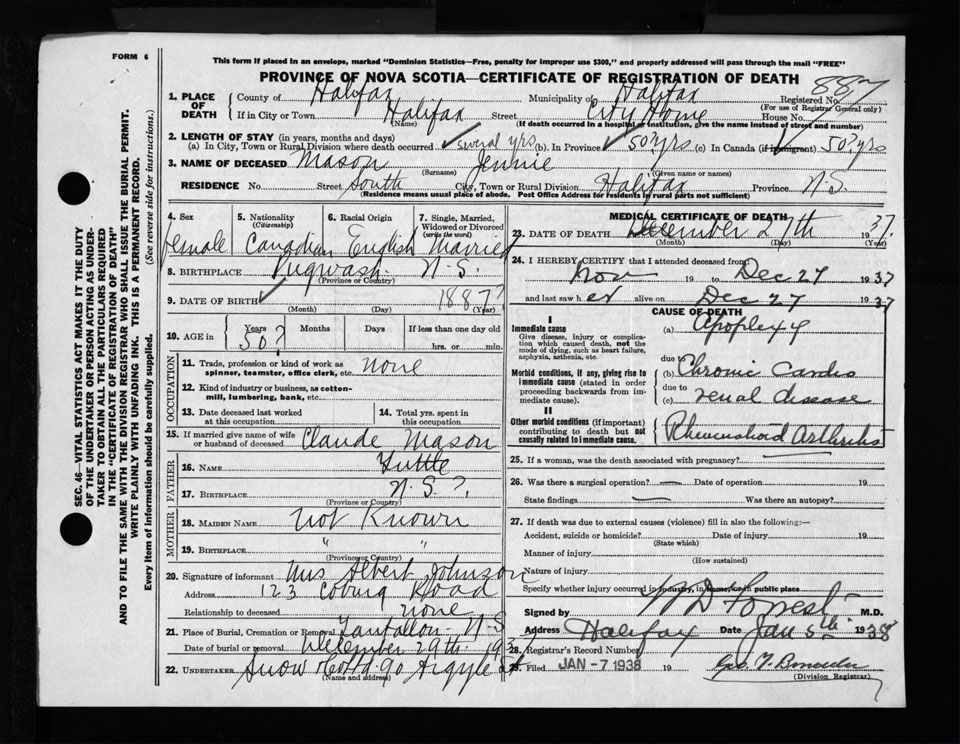 FORM 6
This form if placed in an envelope, marked "Dominion Statistics—Free, penalty for improper use $300," and properly addressed will pass through the mail "FREE"
PROVINCE OF NOVA SCOTIA—CERTIFICATE OF REGISTRATION OF DEATH
887
1. PLACE OF DEATH County of Halifax Municipality of Halifax Registered No.
(For use of Registrar General only)
If in City or Town Halifax Street City Home House No.
(Name) (If death occurred in a hospital or institution, give the name instead of street and number)
2. LENGTH OF STAY (in years, months and days)
(a) In City, Town or Rural Division where death occurred several yrs (b). In Province 50? yrs (c) In Canada (if immigrant) 50? yrs
3. NAME OF DECEASED Mason Jennie
(Surname) (Given name or names)
RESIDENCE No. Street South City, Town or Rural Division Halifax Province N.S.
(Residence means usual place of abode. Post Office Address for residents in rural parts not sufficient)
4. Sex 5. Nationality (Citizenship) 6. Racial Origin 7. Single, Married, Widowed or Divorced (write the word)
female Canadian English Married
8. BIRTHPLACE Pugwash N.S.
(Province or Country)
9. DATE OF BIRTH 1887?
(Month) (Day) (Year)
10. AGE in Years Months Days If less than one day old
50? hrs. or min.
OCCUPATION
11. Trade, profession or kind of work as spinner, teamster, office clerk, etc. none
12. Kind of industry or business, as cotton-mill, lumbering, bank, etc.
13. Date deceased last worked at this occupation 14. Total yrs. spent in this occupation
15. If married give name of wife or husband of deceased Claude Mason
FATHER
16. NAME Tuttle
17. BIRTHPLACE N.S?.
(Province or Country)
MOTHER
18. MAIDEN NAME not Known
19. BIRTHPLACE " "
(Province or Country)
20. Signature of informant Mrs Albert Johnson
Address 123 Coburg Road
Relationship to deceased none
21. Place of Burial, Cremation or Removal Tantallon N.S
Date of burial or removal December 29th 1937
22. UNDERTAKER Snow Co Ltd 90 Argyle St
(Name and address)
MEDICAL CERTIFICATE OF DEATH
23. DATE OF DEATH December 27th 1937.
(Month) (Day) (Year)
24. I HEREBY CERTIFY that I attended deceased from:
Nov 19 to Dec 27 1937
and last saw her alive on Dec 27 1937
CAUSE OF DEATH
I
Immediate cause (a) Apoplexy
Give disease, injury or complication which caused death, not the mode of dying, such as heart failure, asphyxia, asthenia, etc.
due to
Morbid conditions, if any, giving rise to immediate cause (stated in order proceeding backwards from immediate cause). (b) Chronic Cardio
due to
(c) renal disease
II
Other morbid conditions (if important) contributing to death but not causally related to immediate cause. Rheumatoid Arthritis
25. If a woman, was the death associated with pregnancy?
26. Was there a surgical operation? — Date of operation 19
State findings Was there an autopsy?
27. If death was due to external causes (violence) fill in also the following:—
Accident, suicide or homicide? Date of injury 19
(State which)
Manner of injury
(How sustained)
Nature of injury
Specify whether injury occurred in industry, in home, or in public place
Signed by W D Forrest M.D.
Address Halifax Date Jan 5th 1938
28. Registrar's Record Number
29. Filed JAN -7 1938 19
(Division Registrar)
SEC. 46—VITAL STATISTICS ACT MAKES IT THE DUTY
OF THE UNDERTAKER OR PERSON ACTING AS UNDER-
TAKER TO OBTAIN ALL THE PARTICULARS REQUIRED
IN THE "CERTIFICATE OF REGISTRATION OF DEATH"
AND TO FILE THE SAME WITH THE DIVISION REGISTRAR WHO SHALL ISSUE THE BURIAL PERMIT.
WRITE PLAINLY WITH UNFADING INK. THIS IS A PERMANENT RECORD.
Every item of information should be carefully supplied. (See reverse side for instructions.)